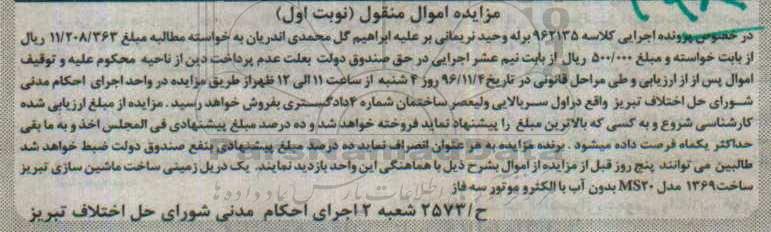 مزایده اموال منقول (نوبت اول)
در خصوص پرونده اجرایی کلاسه ۹۶۲۱۳۵ برله وحید نریمانی بر علیه ابراهیم گل محمدی اندریان به خواسته مطالبه مبلغ ۱۱/۲۰۸/۳۶۳ ریال
از بابت خواسته و مبلغ ۵۰۰/۰۰۰ ریال از بابت نیم عشر اجرایی در حق صندوق دولت بعلت عدم پرداخت دین از ناحیه محکوم علیه و توقیف
اموال پس از از ارزیابی و طی مراحل قانونی در تاریخ ۹۶/۱۱/۴ روز ۴ شنبه از ساعت ۱۱ الی ۱۲ ظهر از طریق مزایده در واحد اجرای احکام مدنی
شورای حل اختلاف تبریز واقع در اول سربالایی ولیعصر ساختمان شماره ۲ دادگستری بفروش خواهد رسید. مزایده از مبلغ ارزیابی شده
کارشناسی شروع و به کسی که بالاترین مبلغ را پیشنهاد نماید فروخته خواهد شد و ده درصد مبلغ پیشنهادی فی المجلس اخذ و به ما بقی
حداکثر یکماه فرصت داده میشود. برنده مزایده به هر عنوان انصراف نماید ده درصد مبلغ پیشنهادی بنفع صندوق دولت ضبط خواهد شد
طالبین می توانند پنج روز قبل از مزایده از اموال بشرح ذیل با هماهنگی این واحد بازدید نمایند. یک دریل زمینی ساخت ماشین سازی تبریز
ساخت ۱۳۶۹ مدل MS۲۰ بدون آب با الکترو موتور سه فاز
ح/۲۵۷۳ شعبه ۲ اجرای احکام مدنی شورای حل اختلاف تبریز